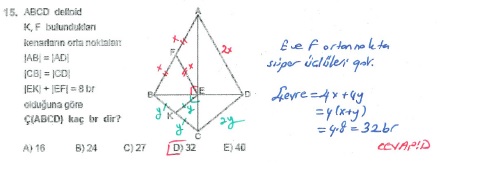 15. ABCD deltoid
K, F bulundukları
kenarların orta noktaları
|AB| = |AD|
|CB| = |CD|
|EK| + |EF| = 8 br
olduğuna göre
Ç(ABCD) kaç br dir?
A) 16 B) 24 C) 27 D) 32 E) 40
A
x
F
2x
x
x
B
E
D
y
y
K
y
2y
C
E ve F orta nokta
süper üçlüleri gör.
Çevre = 4x + 4y
= 4(x+y)
= 4.8 = 32 br
CEVAP: D